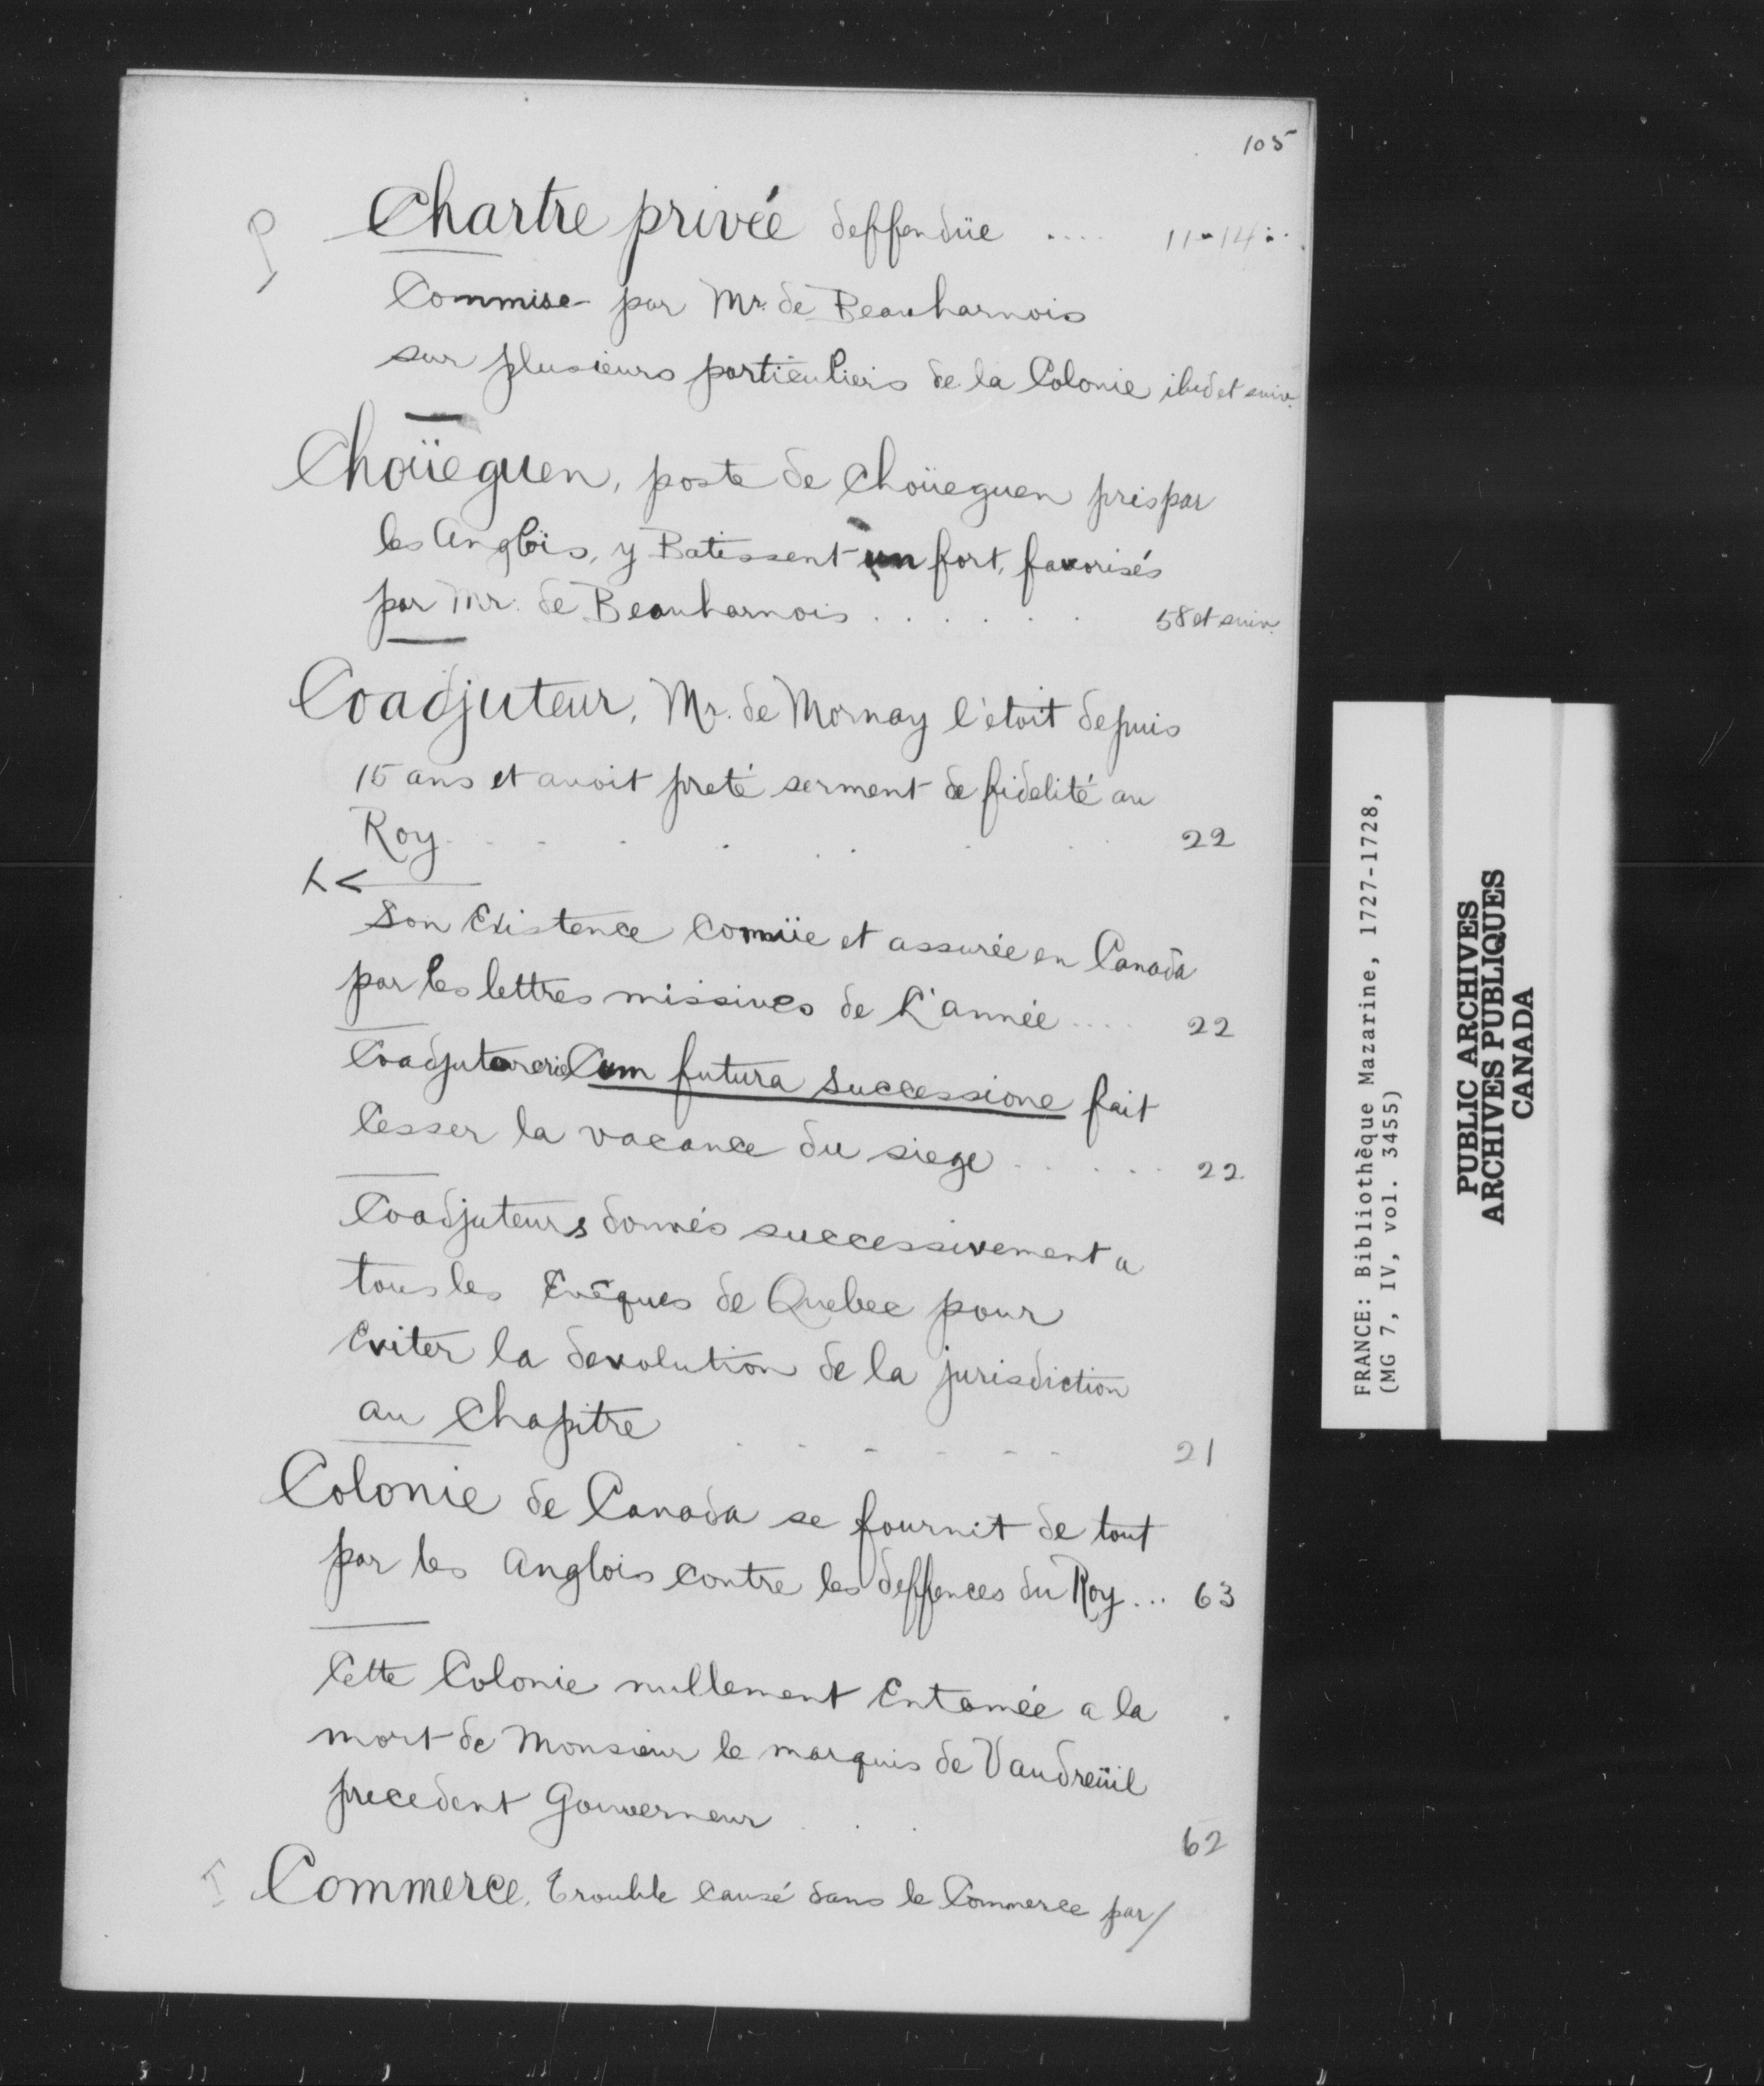 105
Chartre privée deffendüe .... 11-14..
Commise par Mr. de Beauharnois
sur plusieurs particuliers de la Colonie ibid et suiv.
Choüeguen, poste de Choüeguen pris par
les Anglois, y Batissent un fort, favorisés
par Mr. de Beauharnois ...... 58 et suiv.
Coadjuteur, Mr. de Mornay l'étoit depuis
15 ans et avoit preté serment de fidelité au
Roy ....... 22
Son Existence connüe et assurée en Canada
par les lettres missives de L'année .... 22
Coadjutorerie Cum futura successione fait
Cesser la vacance du siege ...... 22
Coadjuteurs donnés successivement a
tous les Evêques de Quebec pour
Eviter la devolution de la jurisdiction
au Chapitre ...... 21
Colonie de Canada se fournit de tout
par les Anglois contre les deffences du Roy ... 63
Cette Colonie nullement Entamée a la
mort de Monsieur le marquis de Vaudreüil
precedent Gouverneur ... 62
Commerce. Trouble causé dans le Commerce par/
FRANCE: Bibliothèque Mazarine, 1727-1728,
(MG 7, IV, vol. 3455)
PUBLIC ARCHIVES
ARCHIVES PUBLIQUES
CANADA